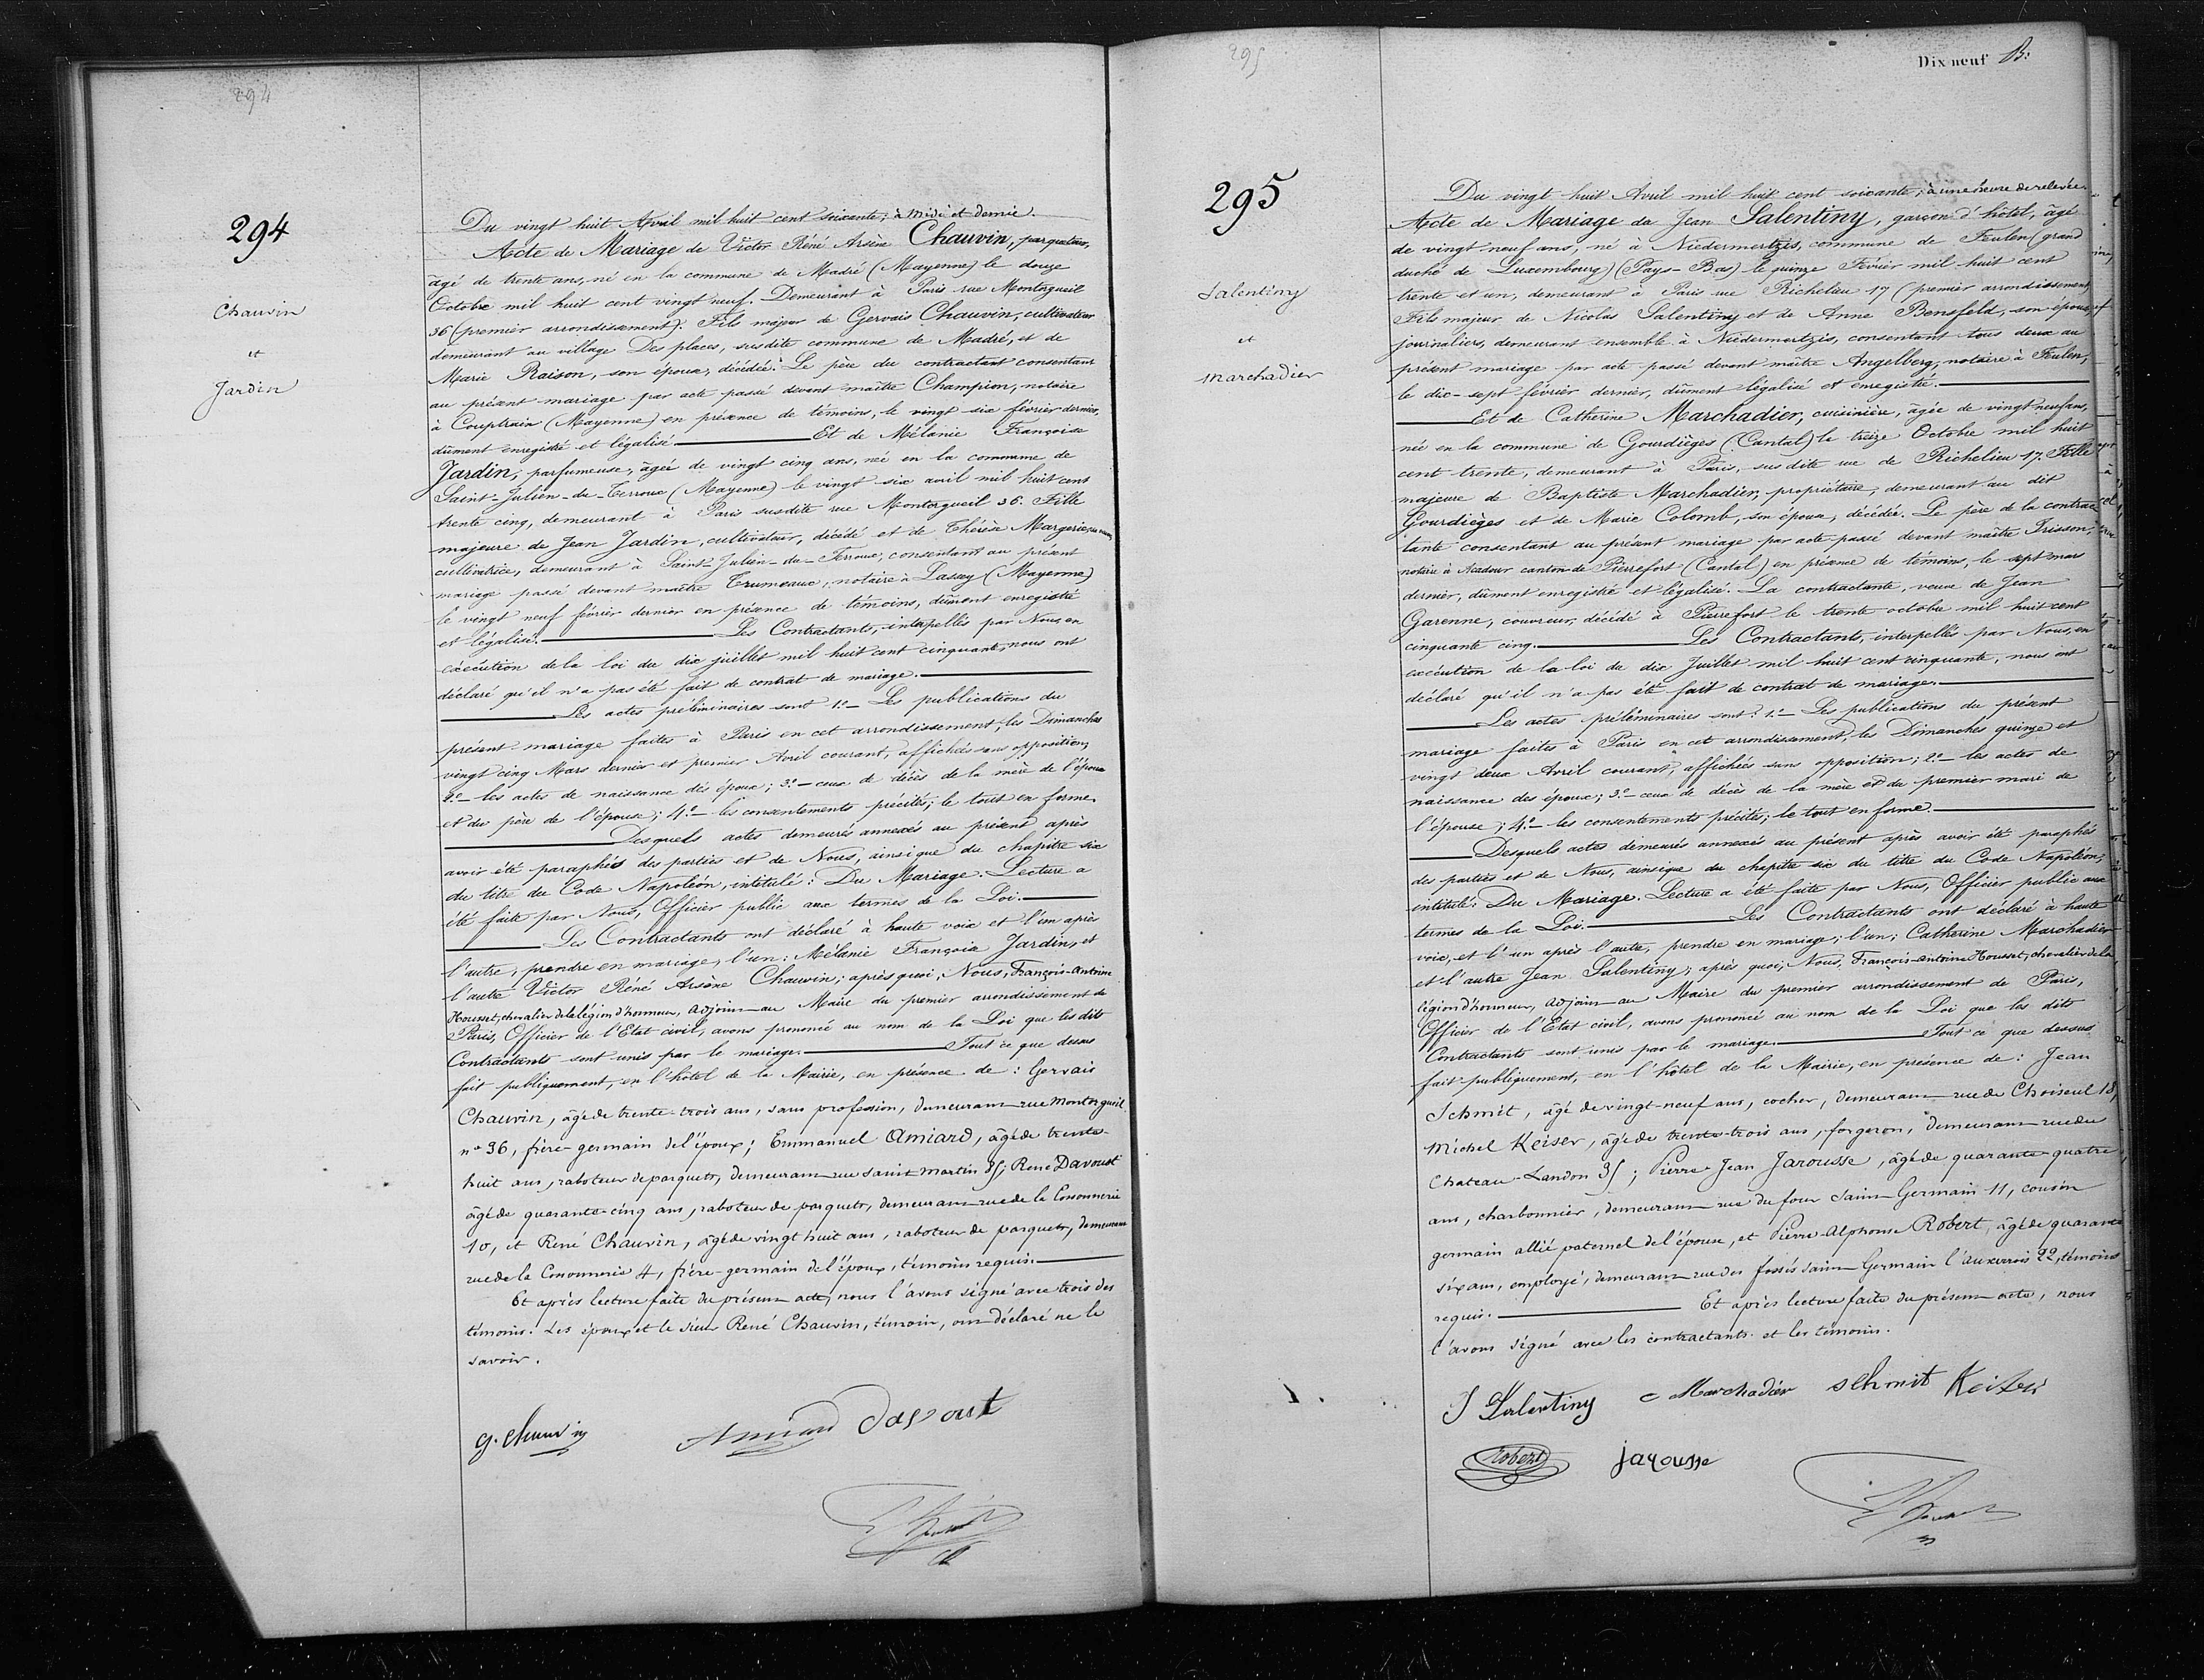 294
294
Chauvin
et
Jardin
Du vingt huit Avril mil huit cent soixante, à midi et demie.
Acte de Mariage de Victor Réné Arsène Chauvin, parqueteur,
âgé de trente ans, né en la commune de Madré (Mayenne) le douze
Octobre mil huit cent vingt neuf. Demeurant à Paris rue Montorgueil
36 (premier arrondissement). Fils majeur de Gervais Chauvin, cultivateur
demeurant au village Des places, susdite commune de Madré, et de
Marie Raison, son épouse, décédée. Le père du contractant consentant
au présent mariage par acte passé devant maître Champion, notaire
à Couptrain (Mayenne) en présence de témoins, le vingt six février dernier,
dûment enregistré et légalisé. Et de Mélanie Françoise
Jardin, parfumeuse, âgée de vingt cinq ans, née en la commune de
Saint-Julien-du-Terroux (Mayenne) le vingt-six avril mil huit cent
trente cinq, demeurant à Paris susdite rue Montorgueil 36. Fille
majeure de Jean Jardin, cultivateur, décédé et de Thérèse Margerie,
cultivatrice, demeurant à Saint-Julien-du-Terroux, consentant au présent
mariage passé devant maître Trumeaux, notaire à Lassay (Mayenne)
le vingt neuf février dernier en présence de témoins, dûment enregistré
et légalisé. Les Contractants, interpellés par Nous, en
exécution de la loi du dix juillet mil huit cent cinquante, nous ont
déclaré qu'il n'a pas été fait de contrat de mariage.
Les actes préliminaires sont 1º- Les publications du
présent mariage faites à Paris en cet arrondissement, les Dimanches
vingt cinq Mars dernier et premier Avril courant, affichées sans opposition,
2º- les actes de naissance des époux; 3º- ceux de décès de la mère de l'époux
et du père de l'épouse; 4º- les consentements précités; le tout en forme.
Desquels actes demeurés annexés au présent après
avoir été paraphés des parties et de Nous, ainsi que du chapitre six
du titre du Code Napoléon, intitulé: Du Mariage. Lecture a
été faite par Nous, Officier public aux termes de la Loi.
Les Contractants ont déclaré à haute voix et l'un après
l'autre, prendre en mariage, l'un: Mélanie Françoise Jardin, et
l'autre Victor Réné Arsène Chauvin; après quoi, Nous, François-Antoine
Housset, chevalier de la légion d'honneur, Adjoint au Maire du premier arrondissement de
Paris, Officier de l'Etat civil, avons prononcé au nom de la Loi que les dits
Contractants sont unis par le mariage. Tout ce que dessus
fait publiquement, en l'hôtel de la Mairie, en présence de: Gervais
Chauvin, âgé de trente-trois ans, sans profession, demeurant rue Montorgueil
nº 36, frère-germain de l'époux; Emmanuel Amiard, âgé de trente-
huit ans, raboteur de parquets, demeurant rue saint martin 35; René Davoust
âgé de quarante-cinq ans, raboteur de parquets, demeurant rue de la Cossonnerie
10, et René Chauvin, âgé de vingt huit ans, raboteur de parquets, demeurant
rue de la Cossonnerie 4, frère-germain de l'époux, témoins requis.
Et après lecture faite du présent acte, nous l'avons signé avec trois des
témoins. Les époux et le sieur René Chauvin, témoin, ont déclaré ne le
savoir.
g. chauvin Amiard Davoust
295
Dix neuf
295
Salentiny
et
Marchadier
Du vingt huit Avril mil huit cent soixante, à une heure de relevée.
Acte de Mariage de Jean Salentiny, garçon d'hôtel, âgé
de vingt neuf ans, né à Niedermertzis, commune de Feulen (grand
duché de Luxembourg) (Pays-Bas) le quinze Février mil huit cent
trente et un, demeurant à Paris rue Richelieu 17 (premier arrondissement)
Fils majeur de Nicolas Salentiny et de Anne Bensfeld, son épouse,
journaliers, demeurant ensemble à Niedermertzis, consentant tous deux au
présent mariage par acte passé devant maître Angelberg, notaire à Feulen,
le dix-sept février dernier, dûment légalisé et enregistré.
Et de Catherine Marchadier, cuisinière, âgée de vingt neuf ans,
née en la commune de Gourdièges (Cantal) le treize Octobre mil huit
cent trente, demeurant à Paris, susdite rue de Richelieu 17. Fille
majeure de Baptiste Marchadier, propriétaire, demeurant au dit
Gourdièges et de Marie Colomb, son épouse, décédée. Le père de la contrac
tante consentant au présent mariage par acte passé devant maître Trisson,
notaire à Neadour canton de Pierrefort (Cantal) en présence de témoins, le sept mars
dernier, dûment enregistré et légalisé. La contractante, veuve de Jean
Garenne, couvreur, décédé à Pierrefort le trente octobre mil huit cent
cinquante cinq. Les Contractants, interpellés par Nous, en
exécution de la loi du dix Juillet mil huit cent cinquante, nous ont
déclaré qu'il n'a pas été fait de contrat de mariage.
Les actes préliminaires sont: 1º- Les publications du présent
mariage faites à Paris en cet arrondissement, les Dimanches quinze et
vingt deux Avril courant, affichées sans opposition; 2º- les actes de
naissance des époux; 3º- ceux de décès de la mère et du premier mari de
l'épouse; 4º- les consentements précités; le tout en forme.
Desquels actes demeurés annexés au présent après avoir été paraphés
des parties et de Nous, ainsi que du chapitre six du titre du Code Napoléon,
intitulé: Du Mariage. Lecture a été faite par Nous, Officier public aux
termes de la Loi. Les Contractants ont déclaré à haute
voix, et l'un après l'autre, prendre en mariage; l'un; Catherine Marchadier
et l'autre Jean Salentiny; après quoi, Nous, François-Antoine Housset, chevalier de la
légion d'honneur, Adjoint au Maire du premier arrondissement de Paris,
Officier de l'Etat civil, avons prononcé au nom de la Loi que les dits
Contractants sont unis par le mariage. Tout ce que dessus
fait publiquement, en l'hôtel de la Mairie, en présence de: Jean
Schmit, âgé de vingt-neuf ans, cocher, demeurant rue de Choiseul 18,
Michel Keiser, âgé de trente-trois ans, forgeron, demeurant rue du
Chateau-Landon 35; Pierre Jean Jarousse, âgé de quarante-quatre
ans, charbonnier, demeurant rue du four Saint Germain 11, cousin
germain allié paternel de l'épouse, et Pierre-Alphonse Robert, âgé de quarante
six ans, employé, demeurant rue des fossés saint Germain l'auxerrois 22, témoins
requis. Et après lecture faite du présent acte, nous
l'avons signé avec les contractants et les témoins.
J Salentiny C Marchadier schmit Keiser
Robert jarousse